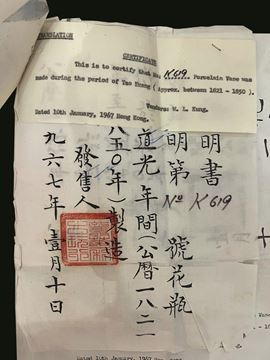 TRANSLATION
CERTIFICATE
This is to certify that K619. Porcelain Vase was
made during the period of Tao Kuang ( Approx. between 1821 - 1850 ).
Vendors: M. L. Kung.
Dated 10th January, 1967 Hong Kong.
明書
明第 號花瓶
No K 619
道光年間(公曆一八二一
八五〇年)製造
發售人
九六七年壹月十日
Dated 10th January, 1967